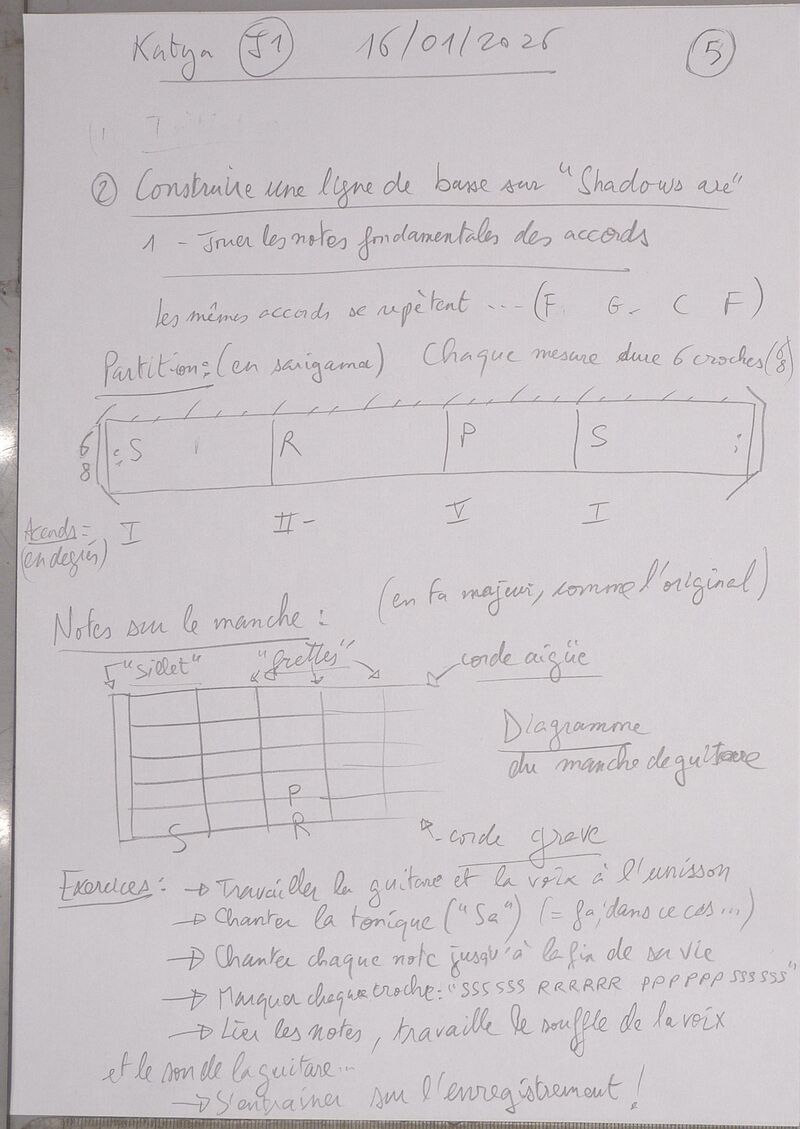 Katya J1 16/01/2026 5
② Construire une ligne de basse sur "Shadows are"
1 - Jouer les notes fondamentales des accords
Les mêmes accords se repètent ... (F G- C F)
Partition : (en sarigama) Chaque mesure dure 6 croches (6/8)
6/8 : S R P S :
Accords = (en degrés) I II- V I
Notes sur le manche : (en Fa majeur, comme l'original)
"Sillet" "frettes" corde aigüe
Diagramme
du manche de guitare
P
S R
corde grave
Exercices : → Travailler la guitare et la voix à l'unisson
→ Chanter la tonique ("Sa") (= fa, dans ce cas...)
→ Chanter chaque note jusqu'à la fin de sa vie
→ Marquer chaque croche : "SSSSSS RRRRRR PPPPPP SSSSSS"
→ Lier les notes, travaille le souffle de la voix
et le son de la guitare...
→ S'entraîner sur l'enregistrement !